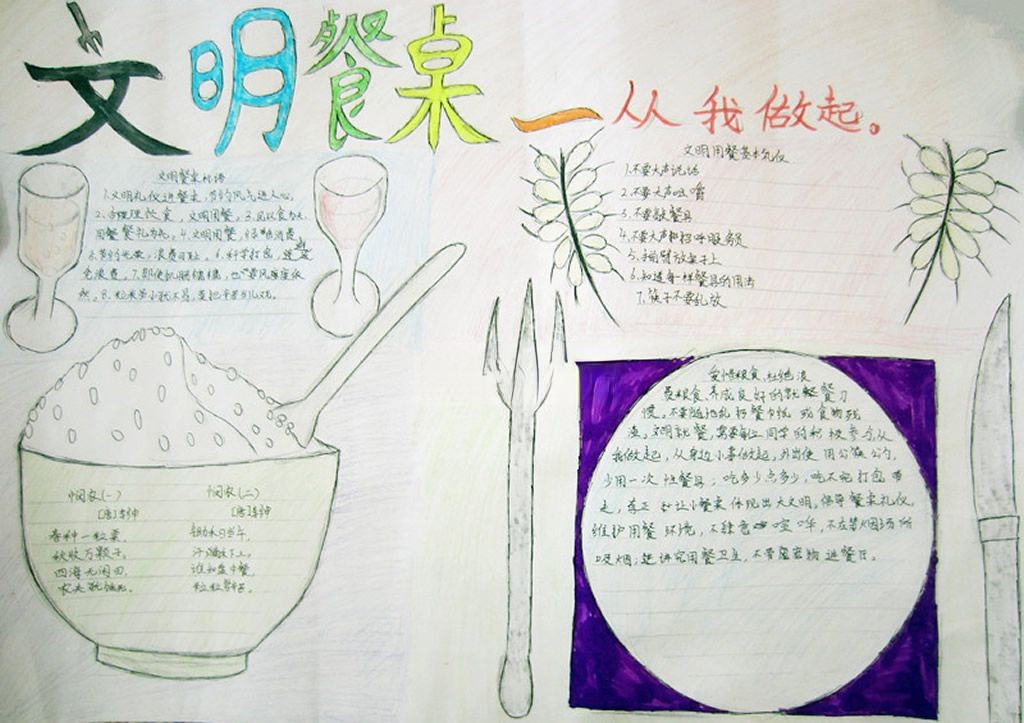 文明餐桌一从我做起。
文明餐桌标语
1.文明礼仪进餐桌,节约风气进人心。
2.合理理饮食,文明用餐。3.民以食为天,
用餐礼为先。4.文明用餐,绿色消费
5.节约光荣,浪费可耻。6.科学打包,
免浪费。7.即使饥肠辘辘,也要风度依
然。8.粒米虽小犹不易,莫把辛苦当儿戏。
文明用餐基本礼仪
1.不要大声说话
2.不要大声咀嚼
3.不要敲餐具
4.不要大声招呼服务员
5.手肘臂放桌子上
6.知道每一样餐具的用法
7.筷子不要乱放
悯农(一)
[唐]李绅
春种一粒粟,
秋收万颗子。
四海无闲田,
农夫犹饿死。
悯农(二)
[唐]李绅
锄禾日当午,
汗滴禾下土。
谁知盘中餐,
粒粒皆辛苦。
爱惜粮食、杜绝浪
费粮食,养成良好的就餐习
惯。不要随地乱扔餐巾纸或食物残
渣。文明就餐,需要每位同学的积极参与,从
我做起,从身边小事做起,外出使用公筷公勺,
少用一次性餐具;吃多少点多少,吃不完打包带
走,真正让小餐桌体现出大文明。倡导餐桌礼仪,
维护用餐环境,不肆意喧哗,不在禁烟场所
吸烟;讲究用餐卫生,不带宠物进餐厅。